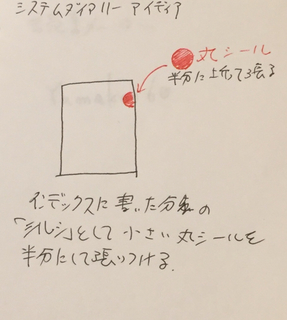 システムダイアリー アイディア
丸シール
半分に折って張る
インデックスに書いた分類の
「シルシ」として小さい丸シールを
半分にして張りつける.